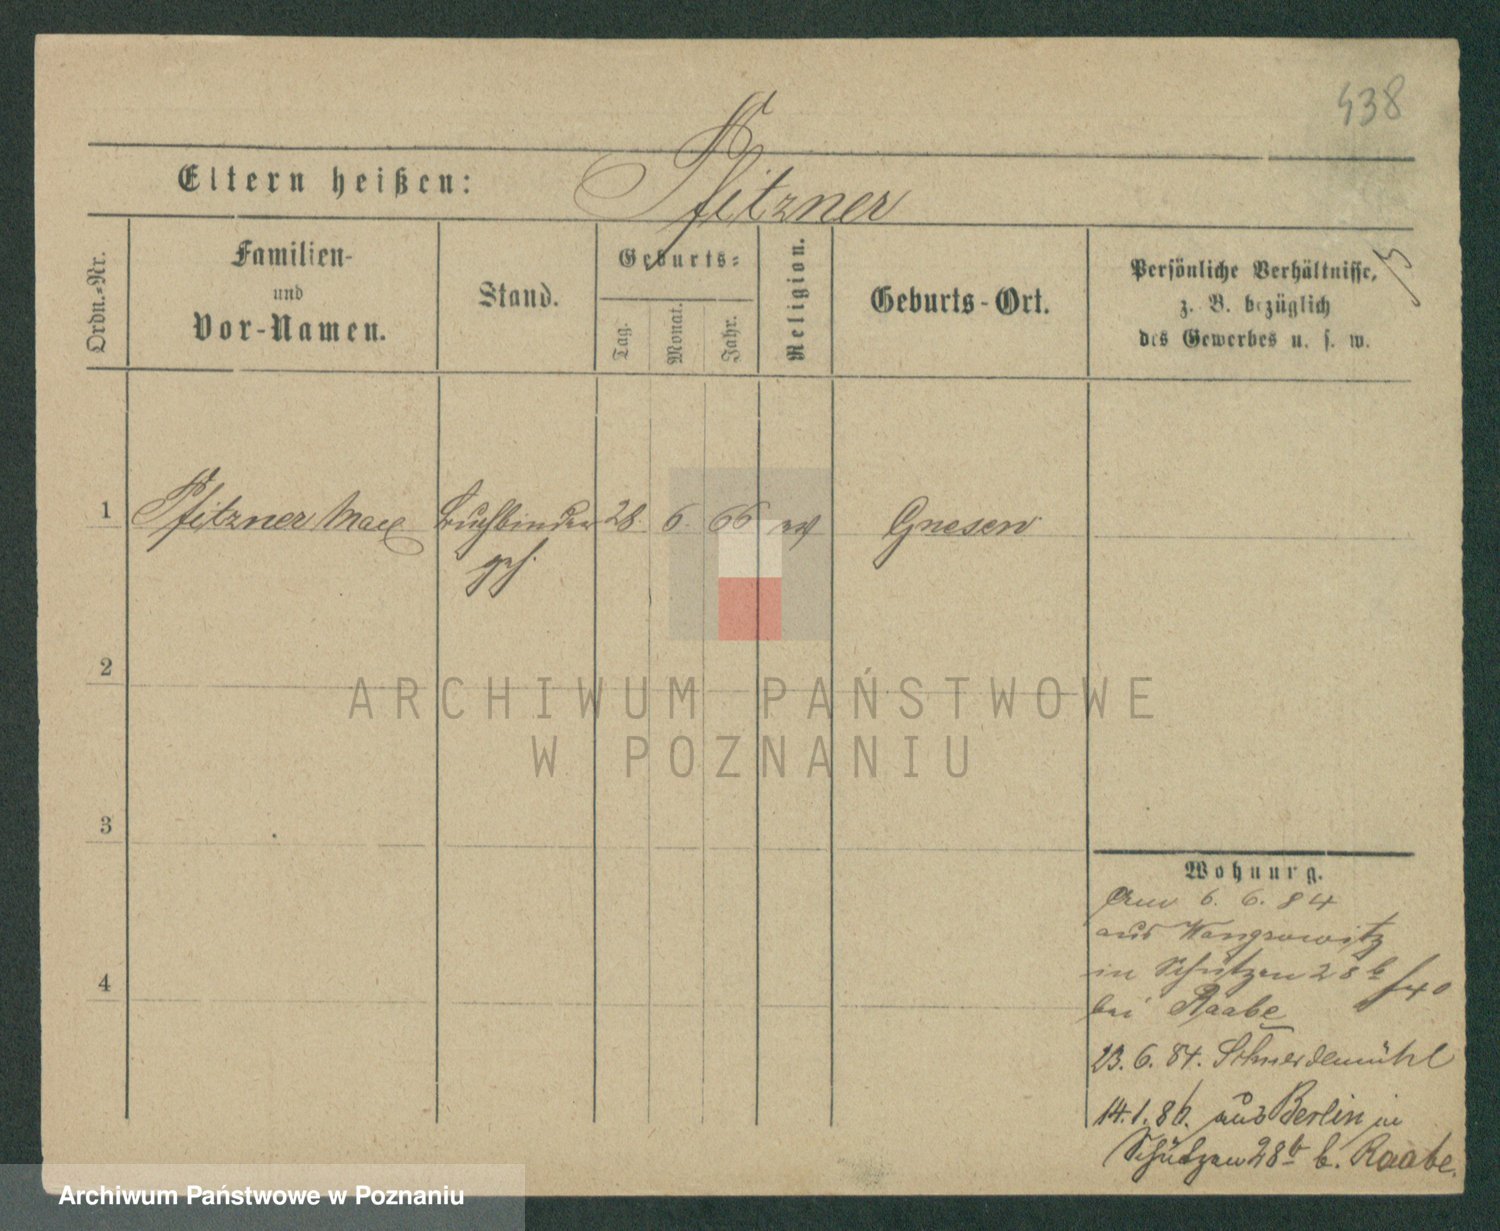 438
Eltern heißen: Pfitzner
Ordn.-Nr.
Familien-
und
Vor-Namen.
Stand.
Geburts-
Tag.
Monat.
Jahr.
Religion.
Geburts-Ort.
Persönliche Verhältnisse,
z. B. bezüglich
des Gewerbes u. s. w.
1 Pfitzner Max Buchbinder 28. 6. 66 ev Gnesen
2
3
4
ARCHIWUM PAŃSTWOWE
W POZNANIU
Wohnung.
6. 6. 84
aus Wongrowitz
in Schützen 28 b
bei Raabe
23. 6. 84. Schneidemühl
14.1.86. aus Berlin in
Schützen 28 b b. Raabe.
Archiwum Państwowe w Poznaniu